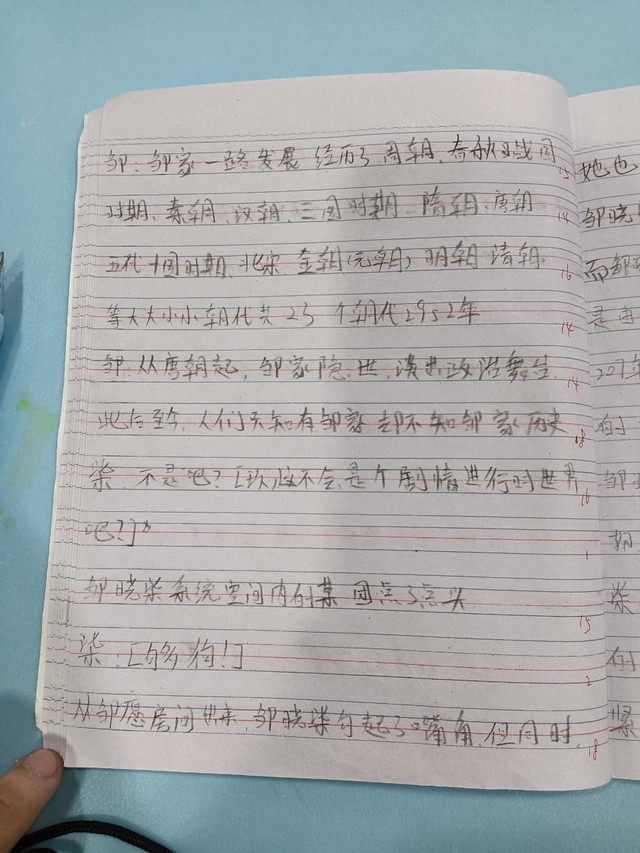 邹:邹家一路发展 经历了周朝、春秋战国 15
时期、秦朝、汉朝、三国时期、隋朝、唐朝 14
五代十国时期、北宋、金朝(元朝) 明朝 清朝. 16
等大大小小朝代共23个朝代2952年 14
邹:从唐朝起,邹家隐世,淡出政治舞台. 14
此后至今,人们只知有邹家却不知邹家历史 18
柒:不是吧?[玖这不会是个剧情进行时世界 16
吧?] 1
邹晓柒系统空间内的某团点了点头 15
柒:[够狗!] 2
从邹愿房间出来,邹晓柒勾起了嘴角,但同时, 18
她也
邹晓
而邹
是由
227年
的
邹
朝
柒
的
紧